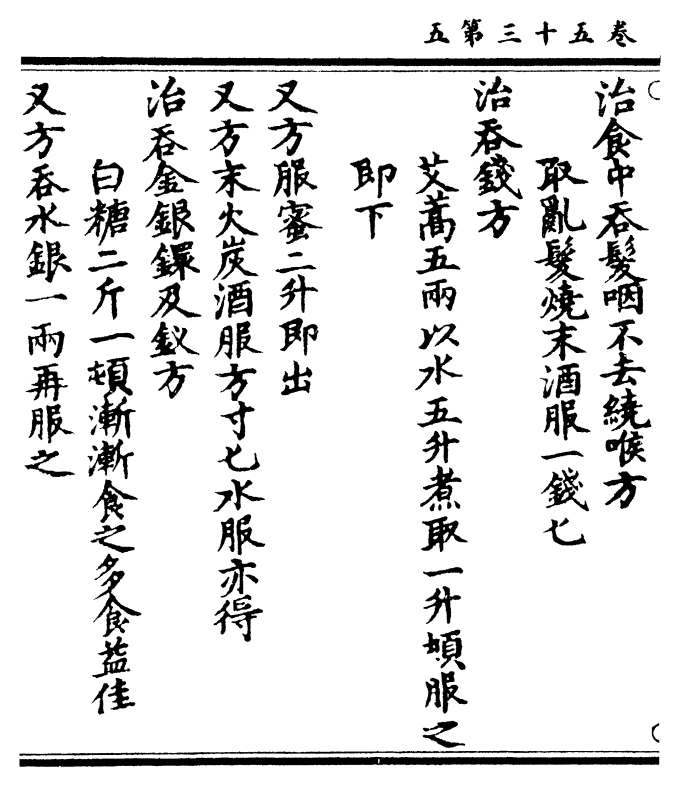 卷五十三第五
治食中吞髮咽不去繞喉方
取亂髮燒末酒服一錢匕
治吞錢方
艾蒿五兩以水五升煮取一升頓服之
即下
又方服蜜二升即出
又方末火炭酒服方寸匕水服亦得
治吞金銀鐶及釵方
白糖二斤一頓漸漸食之多食益佳
又方吞水銀一兩再服之